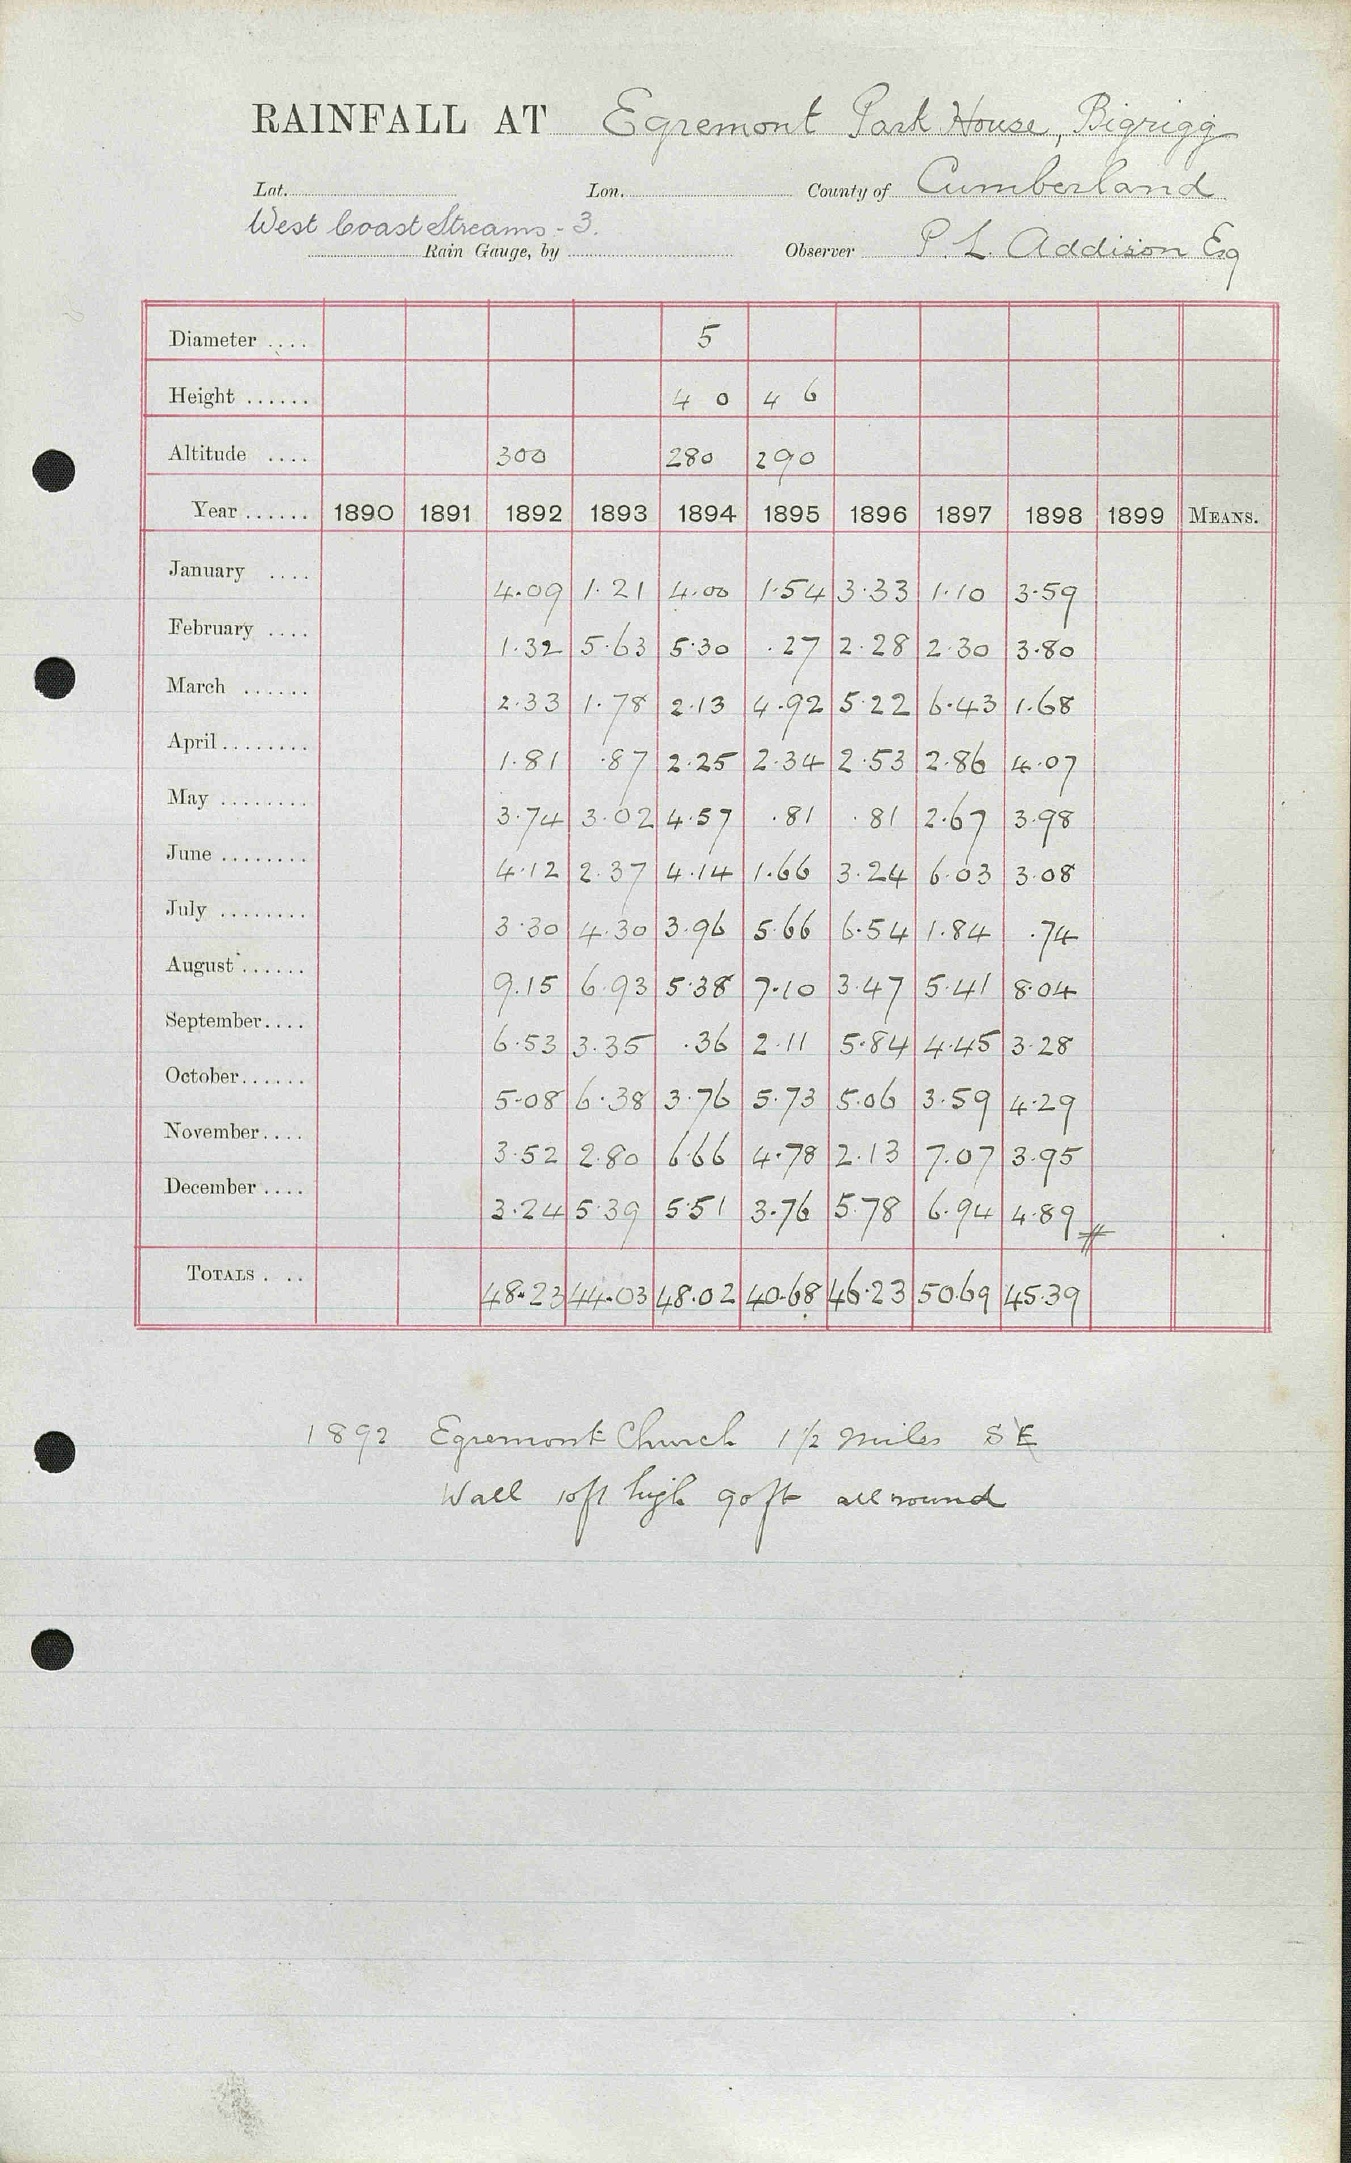 RAINFALL AT Egremont Park House, Bigrigg
Lat. Lon. County of Cumberland
West Coast Streams - 3.
Rain Gauge, by Observer P. L. Addison Esq
Diameter .... 5
Height ...... 4 0 4 6
Altitude .... 300 280 290
Year ...... 1890 1891 1892 1893 1894 1895 1896 1897 1898 1899 MEANS.
January .... 4.09 1.21 4.00 1.54 3.33 1.10 3.59
February .... 1.32 5.63 5.30 .27 2.28 2.30 3.80
March ...... 2.33 1.78 2.13 4.92 5.22 6.43 1.68
April ........ 1.81 .87 2.25 2.34 2.53 2.86 4.07
May ........ 3.74 3.02 4.57 .81 .81 2.67 3.98
June ........ 4.12 2.37 4.14 1.66 3.24 6.03 3.08
July ........ 3.30 4.30 3.96 5.66 6.54 1.84 .74
August ...... 9.15 6.93 5.38 7.10 3.47 5.41 8.04
September .... 6.53 3.35 .36 2.11 5.84 4.45 3.28
October ...... 5.08 6.38 3.76 5.73 5.06 3.59 4.29
November .... 3.52 2.80 6.66 4.78 2.13 7.07 3.95
December .... 3.24 5.39 5.51 3.76 5.78 6.94 4.89
TOTALS . .. 48.23 44.03 48.02 40.68 46.23 50.69 45.39
1892 Egremont Church 1½ miles SE
Wall 10ft high 90ft all round